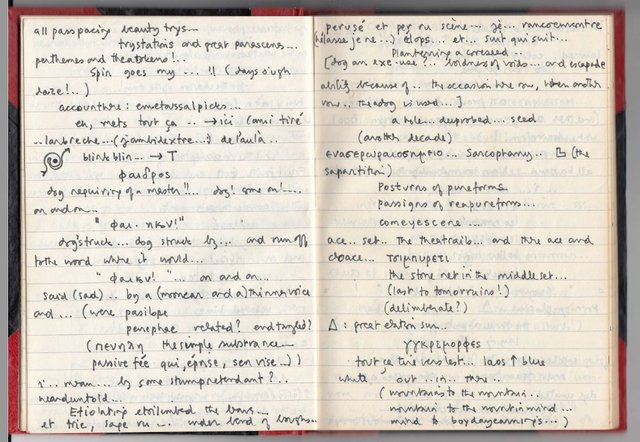 all pass pacing beauty trys...
trystations and great parascens...
parthemes and theatremes!..
Spin goes my ... !! (days o'ugh
daze!..)
accounthure: emetassal picks...
eh, mets tout ça .. → ici (ainsi tiré
...larbreche...(jambidextre...) de l'aulà..
blink blin... → T
φαιδρος
dog requiring of a master!!.. dog! come on!....
on and on...
" φαι. πκου!"
dog struck... dog struck by.... and run off
to the word where it would...
" φαικυ! " ... on and on...
said (sad) .. by a (moncar and a) thinner voice
and ... (were pasilope
penephae related? entangled?
(πενηλη the simple substance...
passive fée qui, éprise, sen vise...))
i.. mean... by some stump retendant?..
neard untold...
Etiolating etoilumbed the bars...
et tric, sape ru ... under bend of boughs...
perusé et per ru scène... je... rancoemontre
(elasse je ne...) elops... et... suit qui suit...
Planterning a corseeed..
[dog an exe-use?... loudness of voids... and escapade
ability because of .. the occasion hire row, when another
row.. the dog is used...]
a hle.. deuprobed... seed
(another decade)
Sarcophamy... (the
sapartition)
Posturns of pureforms
passigns of reapureforms...
comeyescene...
ace.. set.. the theatrails... and thre ace and
choace... τσιμπυρετι
the stone net in the middle set...
(last to tomorruins!)
(delimberate?)
Δ: great elation sun...
γγκρεμορφες
tout ça tire vers lest... laos ↑ blue
white out .. in .. there ..
(mountains to the mountain...
mountain to the mountinmind...
mind to boydaycannoys...)